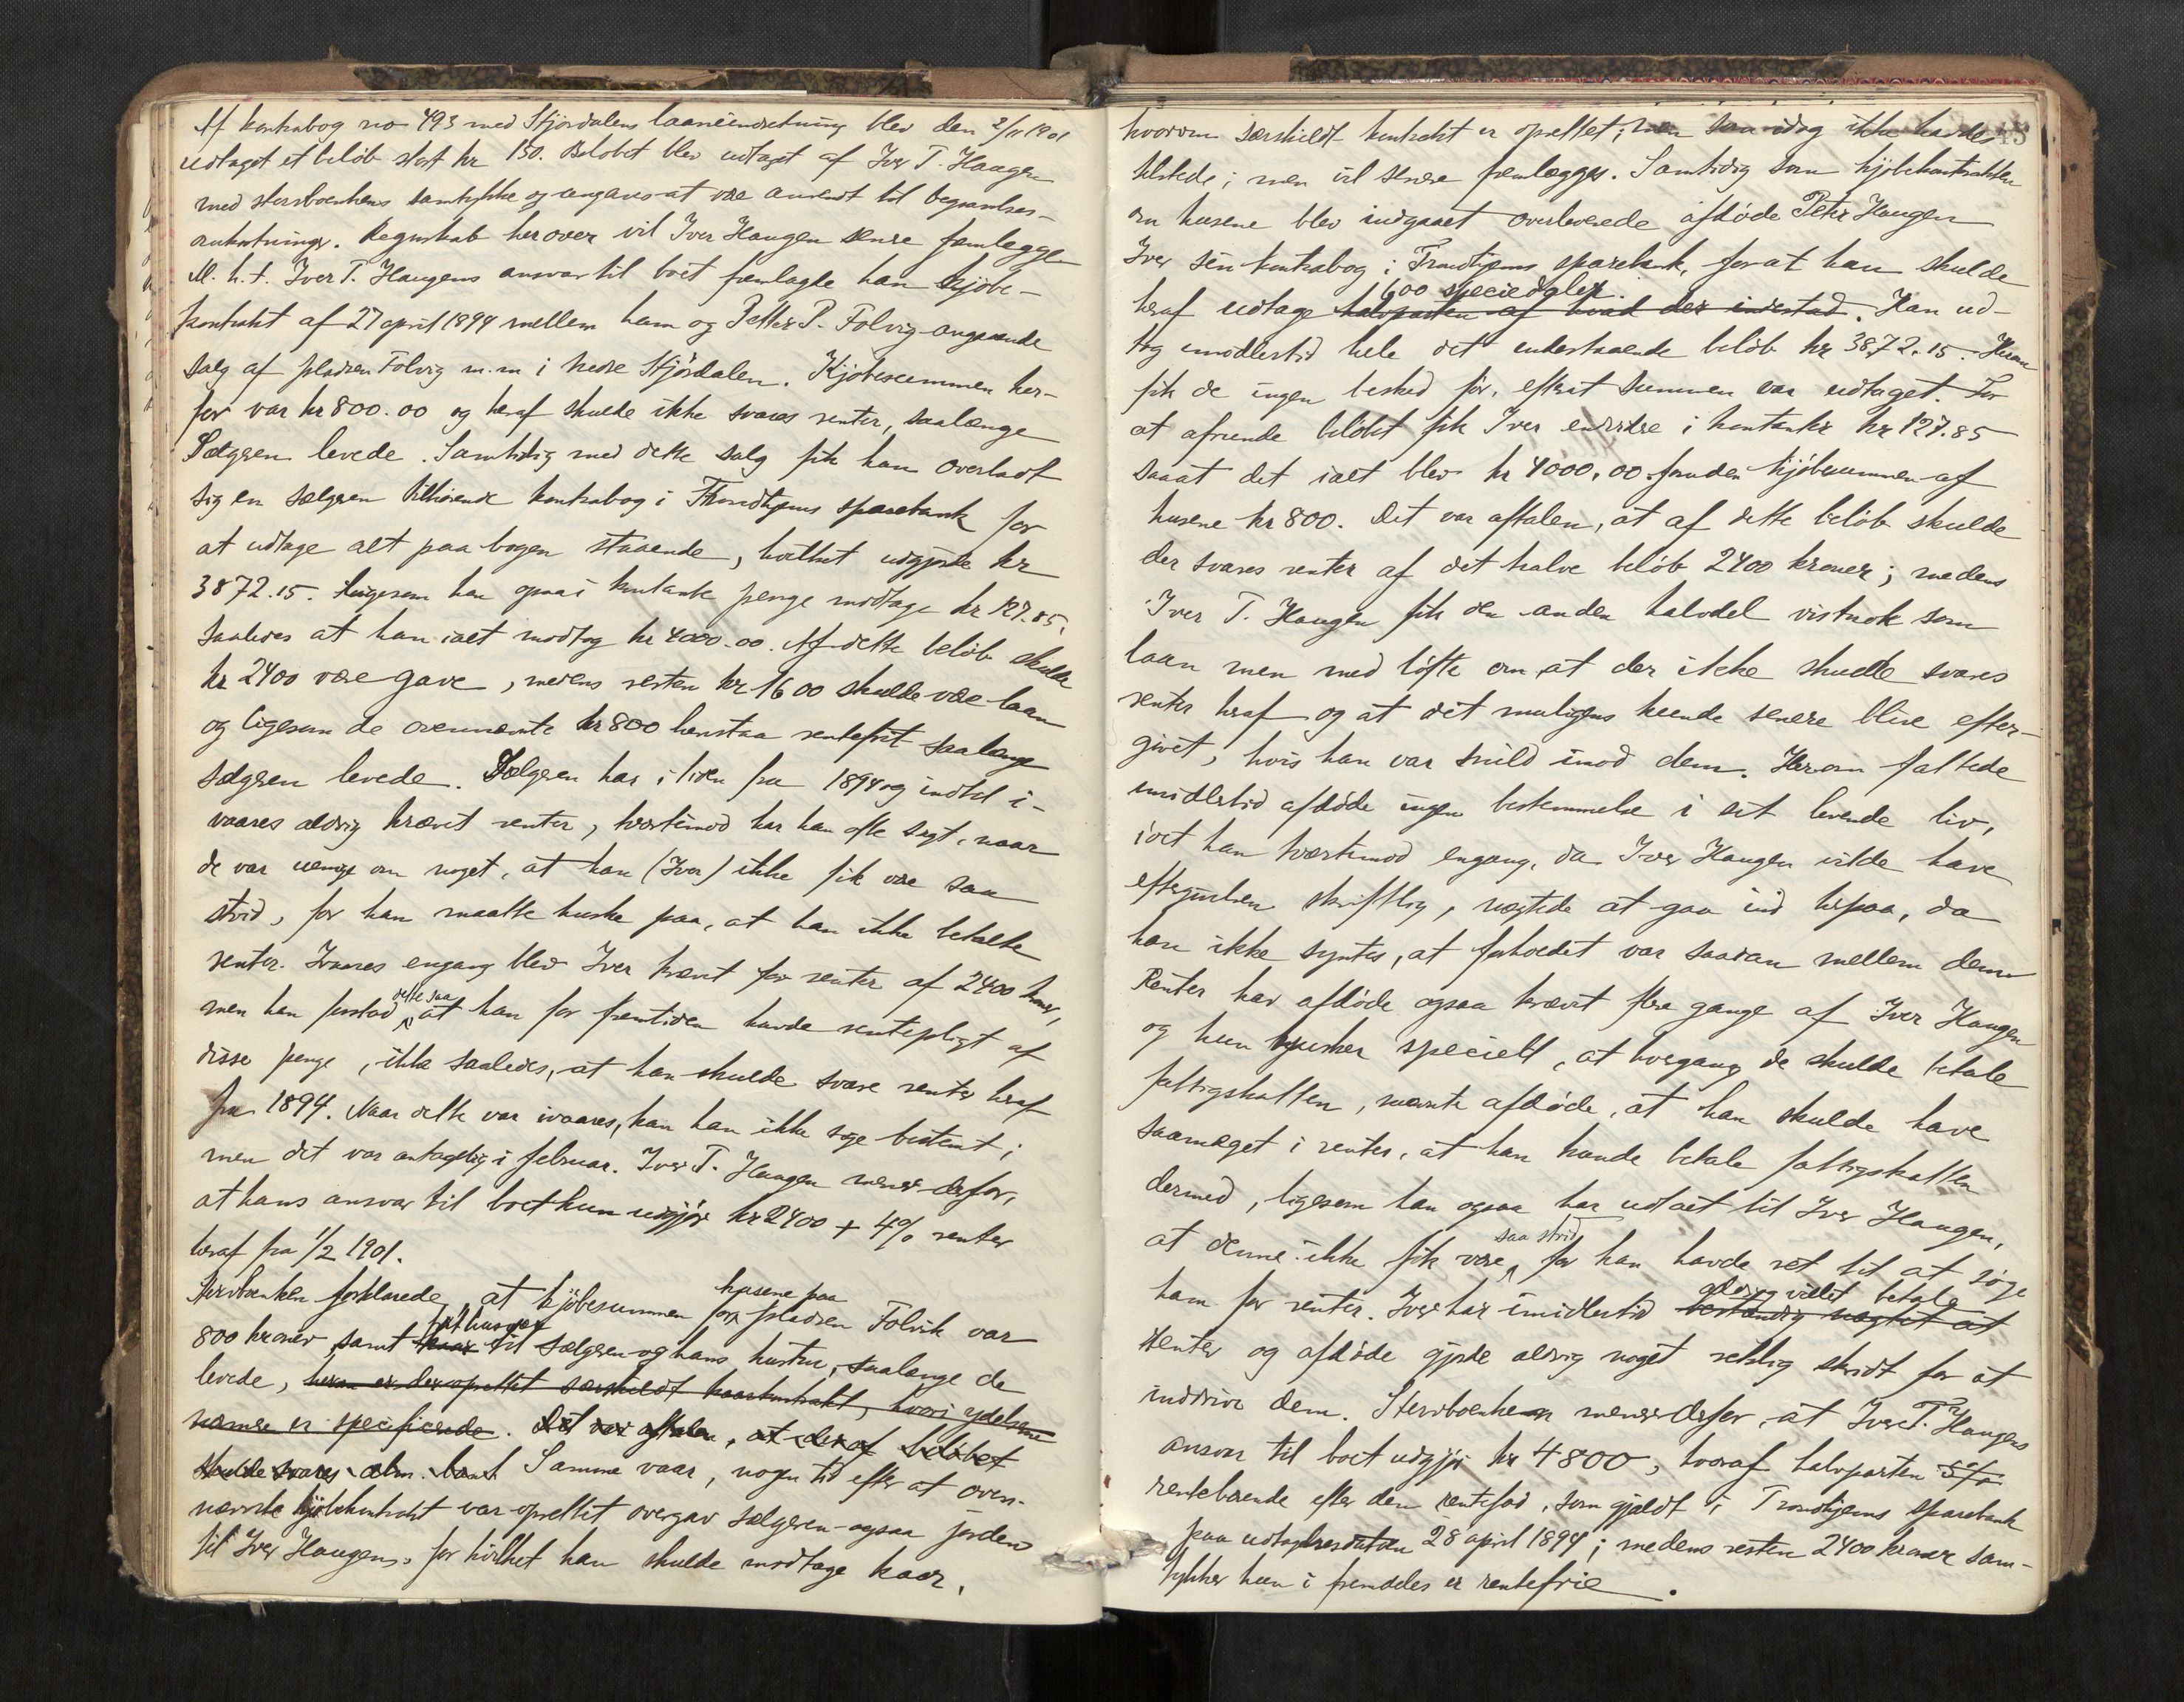 Af kontrabog no 493 med Stjørdalens laaneindretning blev den 2/11 1901
udtaget et beløb stort kr 150. Beløbet blev udtaget af Iver T. Haugen
med sterboenkens samtykke og angaves at være anvendt til begravelses-
omkostninger. Regnskab herover vil Iver Haugen senere fremlægge
M. h. t. Iver T. Haugens ansvar til boet fremlagte han kjøbe-
kontrakt af 27 april 1894 mellem ham og Petter P. Folvig angaaende
salg af pladsen Folvig m. m i nedre Stjørdalen. Kjøbesummen her-
for var kr 800.00 og heraf skulde ikke svares renter, saalænge
Sælgeren levede. Samtidig med dette salg fik han overladt
sig en sælgeren tilhørende kontrabog i Throndhjems sparebank for
at udtage alt paa bogen staaende, hvilket udgjorde kr
3872.15. ligesom han ogsaa i kontante penge modtog kr 127.85,
saaledes at han ialt modtog kr 4000.00. Af dette beløb skulde
kr 2400 være gave, medens resten kr 1600 skulde være laan
og ligesom de ovennævnte kr 800 henstaa rentefrit saalænge
sælgeren levede. Sælgeren har i tiden fra 1894 og indtil i-
vaares aldrig krævet renter, tvertimod har han ofte sagt, naar
de var uenige om noget, at han (Iver) ikke fik være saa
strid, for han maatte huske paa, at han ikke betalte
renter. Ivaares engang blev Iver krævet for renter af 2400 kroner,
men han forstod dette saa at han for fremtiden havde rentepligt af
disse penge, ikke saaledes, at han skulde svare renter heraf
fra 1894. Naar dette var ivaares, kan han ikke sige bestemt;
men det var antagelig i februar. Iver T. Haugen mener derfor,
at hans ansvar til boet kun udgjør kr 2400 + 4% renter
heraf fra 1/2 1901.
Sterboenken forklarede, at kjøbesummen for husene paa pladsen Folvik var
800 kroner samt frit husvær til sælgeren og hans hustru, saalænge de
levede, herom er der oprettet særskildt kaarkontrakt, hvori ydelserne
nærmere er specificerede. Det var aftalen, at der af beløbet
skulde svares alm. bank Samme vaar, nogen tid efter at oven-
nævnte kjøbekontrakt var oprettet overgav sælgeren ogsaa jorden
til Iver Haugen, for hvilket han skulde modtage kaar,
hvorom særskildt kontrakt er oprettet; men som idag ikke havdes
tilstede; men vil senere fremlægges. Samtidig som kjøbekontrakten
om husene blev indgaaet overleverede afdøde Peter Haugen
Iver sin kontrabog i Trondhjems sparebank, for at han skulde
heraf udtage halvparten af hvad der indestod 600 speciedaler. Han ud-
tog imidlertid hele det indestaaende beløb kr 3872.15. Herom
fik de ingen besked før, efterat summen var udtaget. For
at afrunde beløbet fik Iver endvidere i kontanter kr 127.85
saaat det ialt blev kr 4000.00 foruden kjøbesummen af
husene kr 800. Det var aftalen, at af dette beløb skulde
der svares renter af det halve beløb 2400 kroner; medens
Iver T. Haugen fik den anden halvdel vistnok som
laan men med løfte om at der ikke skulde svares
renter heraf og at det muligens kunde senere blive efter-
givet, hvis han var snild imod dem. Herom fattede
imidlertid afdøde ingen bestemmelse i sit levende liv,
idet han tvertimod engang, da Iver Haugen vilde have
eftergivelsen skriftlig, nægtede at gaa ind herpaa, da
han ikke syntes, at forholdet var saadan mellem dem
Renter har afdøde ogsaa krævet flere gange af Iver Haugen
og hun husker specielt, at hvergang de skulde betale
fattigskatten, nævnte afdøde, at han skulde have
saameget i renter, at han kunde betale fattigskatten
dermed, ligesom han ogsaa har udtalt til Iver Haugen,
at denne ikke fik være saa strid for han havde ret til at søge
ham for renter. Iver har imidlertid bestandig nægtet at aldrig villet betale
renter og afdøde gjorde aldrig noget retslig skridt for at
inddrive dem. Sterboenken mener derfor, at Iver T. Haugens
ansvar til boet udgjør kr 4800, hvoraf halvparten
rentebærende efter den rentefod, som gjældt i Trondhjems sparebank
paa udtagelsesdatoen 28 april 1894; medens resten 2400 kroner sam-
tykker hun i fremdeles er rentefrie.